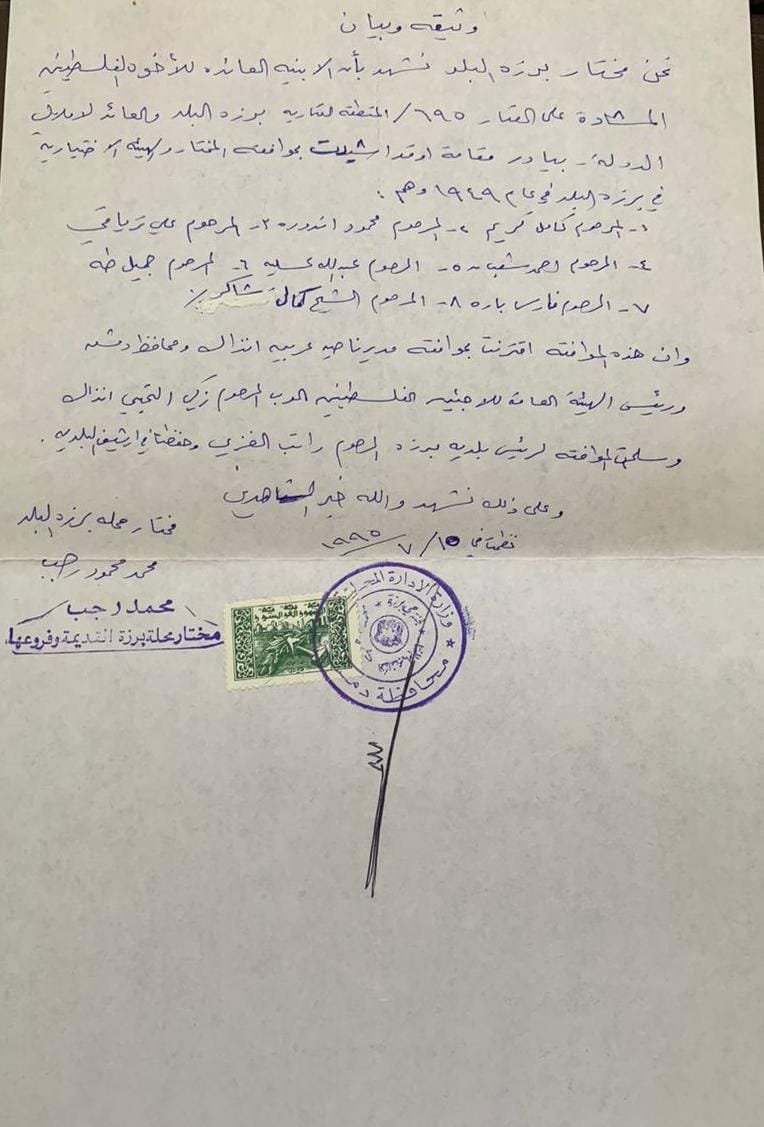 وثيقه وبيان
نحن مختار برزه البلد نشهد بأن الابنيه العائده للأخوه الفلسطينين
المشادة على العقار ٦٩٥/ المنطقه العقاريه برزه البلد والعائد لاملاك
الدوله - بيادر - مقامة اوقد اشيدت بموافقه المختار والهيئه الاختياريه
في برزه البلد في عام ١٩٤٩ وهم :
١- المرحوم كامل كريم ٢- المرحوم محمود اندوره ٣- المرحوم علي ترياقي
٤- المرحوم احمد شعبان ٥- المرحوم عبدالله عسليه ٦- المرحوم جميل طه
٧- المرحوم فارس باره ٨- المرحوم الشيخ كمال شاكر ٪
وان هذه الموافقه اقترنت بموافقه مدير ناحيه عربيه انذاك ومحافظ دمشق
ورئيس الهيئة العامة للاجئين الفلسطينين العرب المرحوم زكي التميمي انذاك
وسلمت الموافقه لرئيس بلديه برزه المرحوم راتب الغزي وحفظت في ارشيف البلديه .
وعلى ذلك نشهد والله خير الشاهدين
نظمت في ١٥/ ٧/ ١٩٩٥
مختار محله برزه البلد
محمد محمود رجب
محمد رجب
مختار محلة برزة القديمة وفروعها
وزارة الإدارة المحلية
محافظة دمشق